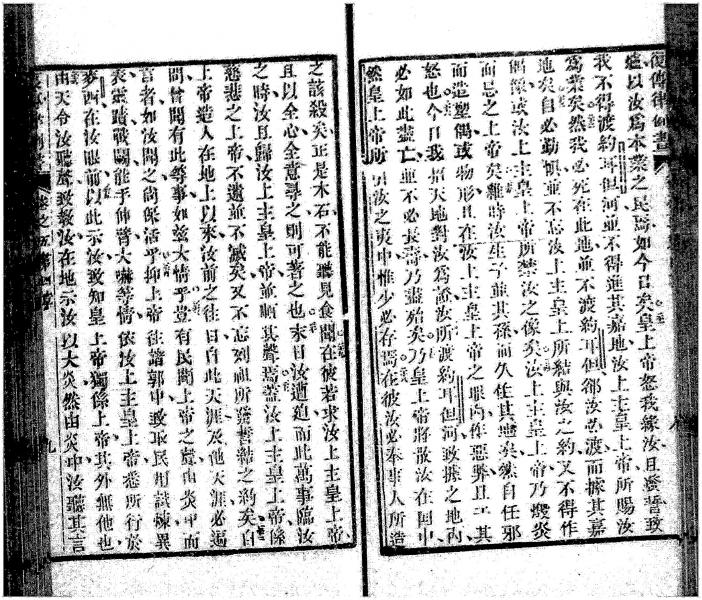 復傳律例書
爐以汝爲本業之民焉如今日矣皇上帝怒我緣汝且發誓致
我不得渡約耳但河並不得進其嘉地汝上主皇上帝所賜汝
爲業矣然我必死在此地並不渡約耳但卻汝必渡而據其嘉
地矣自必勤慎並不忘汝上主皇上所結與汝之約又不得作
偶像或汝上主皇上帝所禁汝之像矣汝上主皇上帝乃燬炎
而忌之上帝矣雖時汝生子並其孫而久住其地矣然自任邪
而造塑偶或物形且在汝上主皇上帝之眼內作惡弊且干其
怒也今日我招天地對汝爲證汝所渡約耳但河致據之地內
必如此盡亡並不必長壽乃盡殆矣乃皇上帝將散汝在國中
然皇上帝所引汝之夷中惟少必存焉在彼汝必奉事人所造
之該殺矣正是木石不能聽見食聞在彼若求汝上主皇上帝
且以全心全意尋之則可著之也末日汝遭廹而此萬事臨汝
之時汝且歸汝上主皇上帝並順其聲焉蓋汝上主皇上帝係
慈悲之上帝不遺並不滅矣又不忘列祖所發誓勒之約矣自
上帝造人在地上以來汝前之往日自此天涯及他天涯必遍
問曾聞有此等事如兹大情乎豈有民聞上帝之聲由炎中而
言者如汝聞之尚保活乎抑上帝往諸郭中致取民用試煉異
表靈蹟戰鬭能手伸臂大嚇等情依汝上主皇上帝悉所行於
麥西在汝眼前以此示汝致知皇上帝獨係上帝其外無他也
由天令汝聽聲致教汝在地示汝以大炎然由炎中汝聽其言
卷之五第四章 九